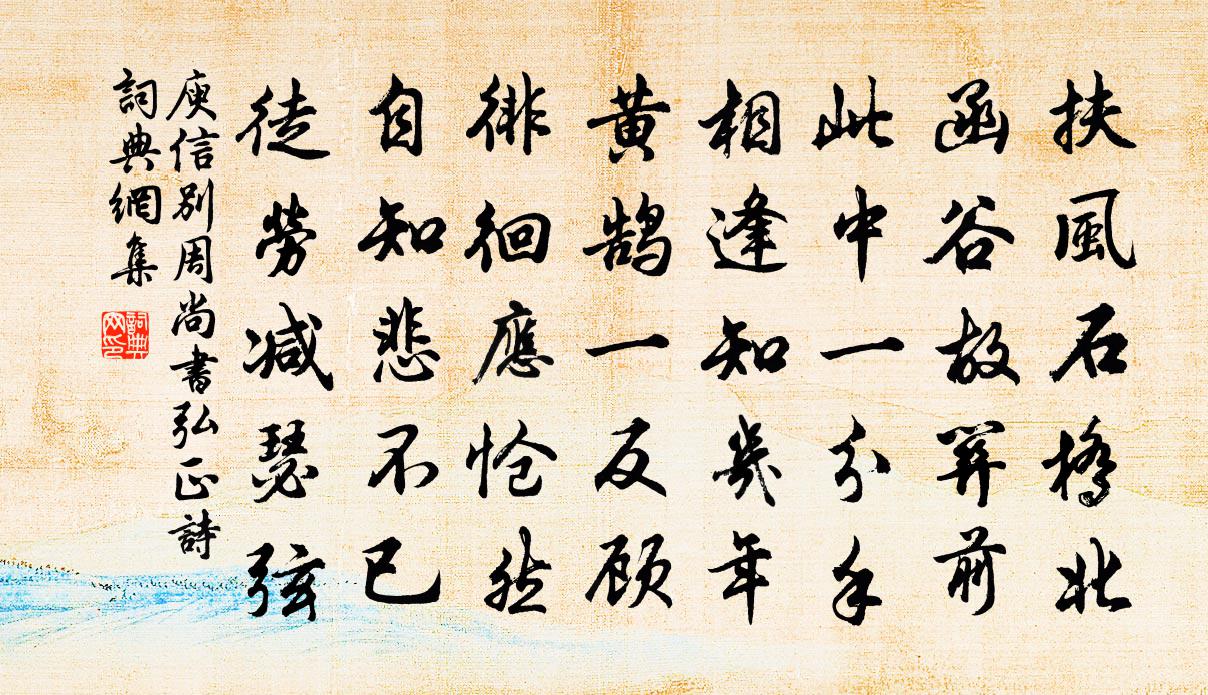 扶風石橋北
函谷故關前
此中一分手
相逢知幾年
黃鵠一反顧
徘徊應愴然
自知悲不已
徒勞減瑟弦
庾信別周尚書弘正詩
詞典網集
詞典网印